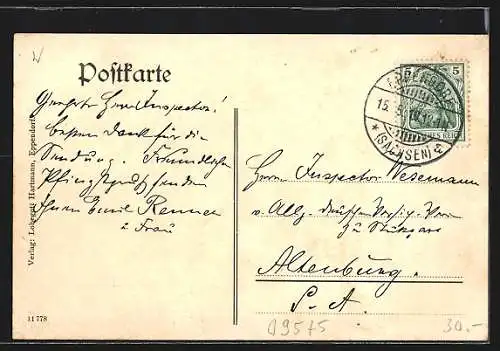 Postkarte
Geehrter Herr Inspector!
besten Dank für die
Sendung. Freundlichen
Pfingstgruß senden
Ihnen Emil Renner
u. Frau
Verlag: Hartmann, Eppendorf
11778
5 5
EPPENDORF
15
* (SACHSEN) *
REICH
Herrn Inspector Wesemann
v. Allg. deutschen
zu Stuttgart
Altenburg.
S.-A.
09575
30.-